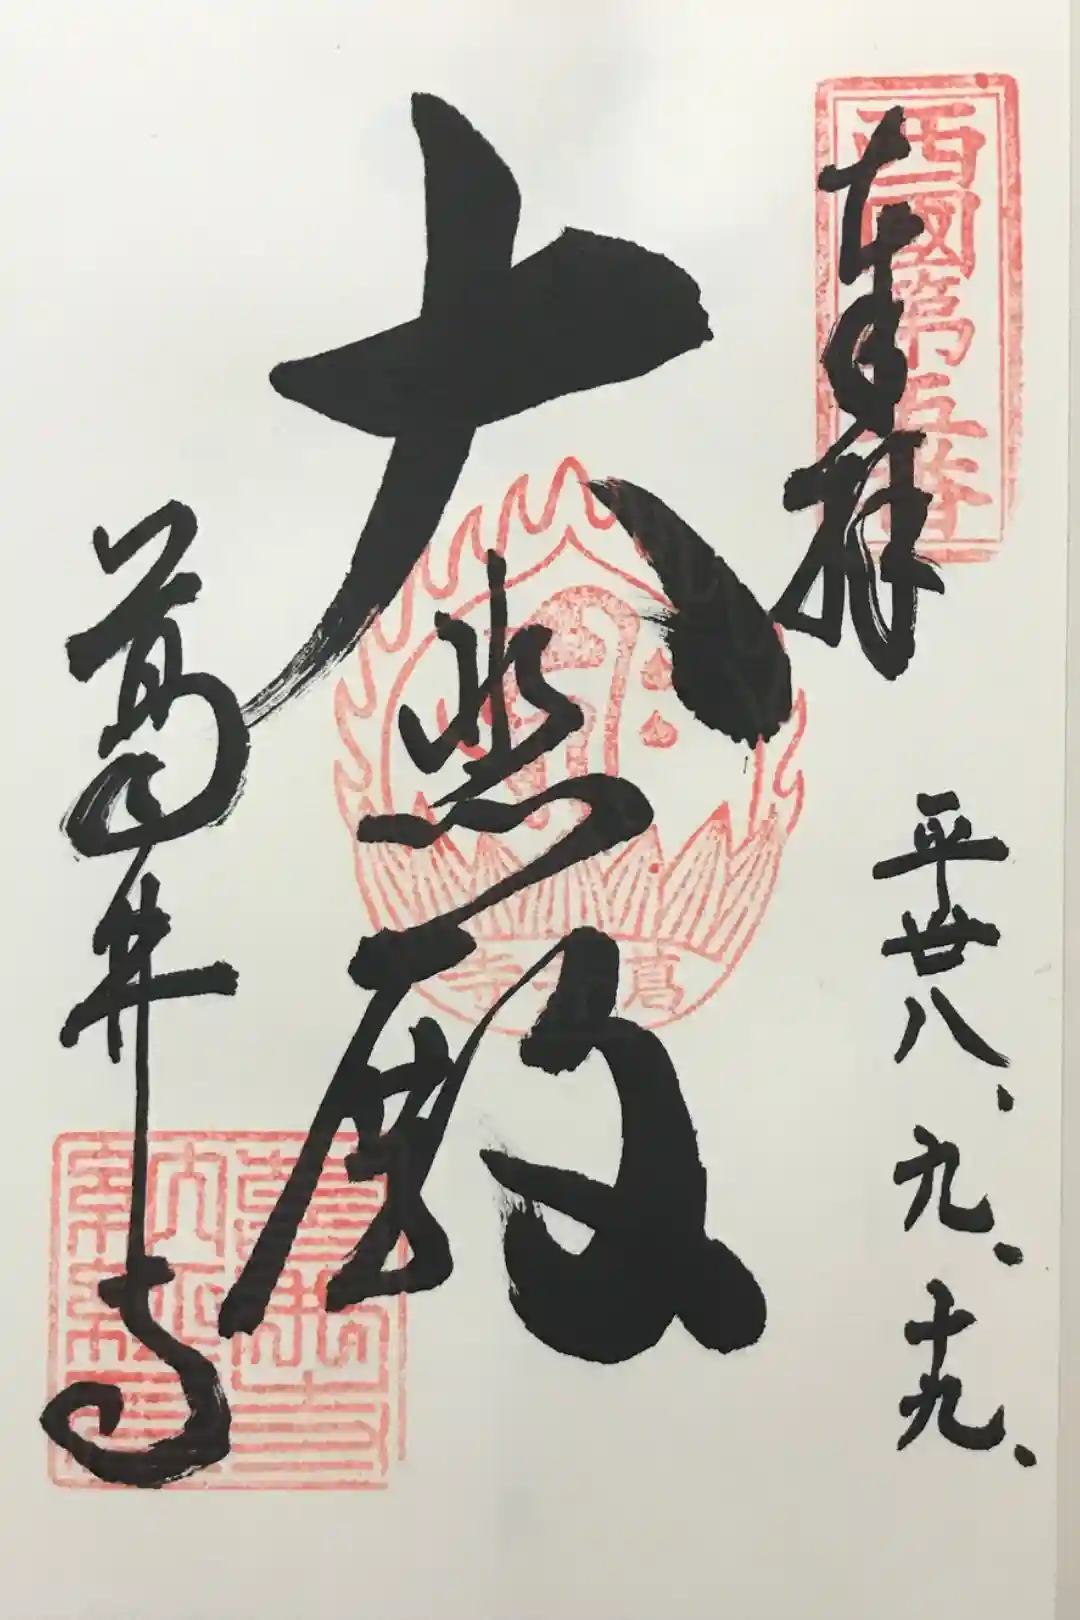 西國第五番
奉拝
平廿八、九、十九、
大悲殿
葛井寺
葛井寺